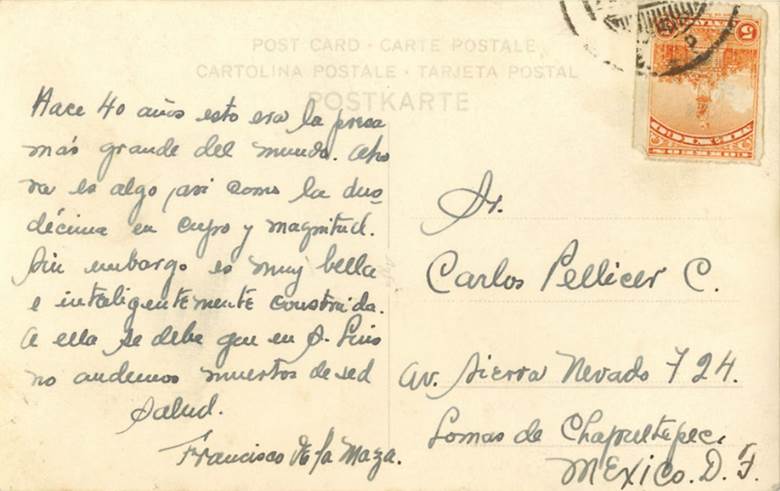 POST CARD · CARTE POSTALE
CARTOLINA POSTALE · TARJETA POSTAL
POSTKARTE
Hace 40 años esto era la presa
más grande del mundo. Aho
ra es algo, así como la duo
décima en cupo y magnitud.
Sin embargo es muy bella
e inteligentemente construída.
A ella se debe que en S. Luis
no andemos muertos de sed
Salud.
Francisco de la Maza.
Sr.
Carlos Pellicer C.
Av. Sierra Nevado 724.
Lomas de Chapultepec.
MExico. D. F.
5